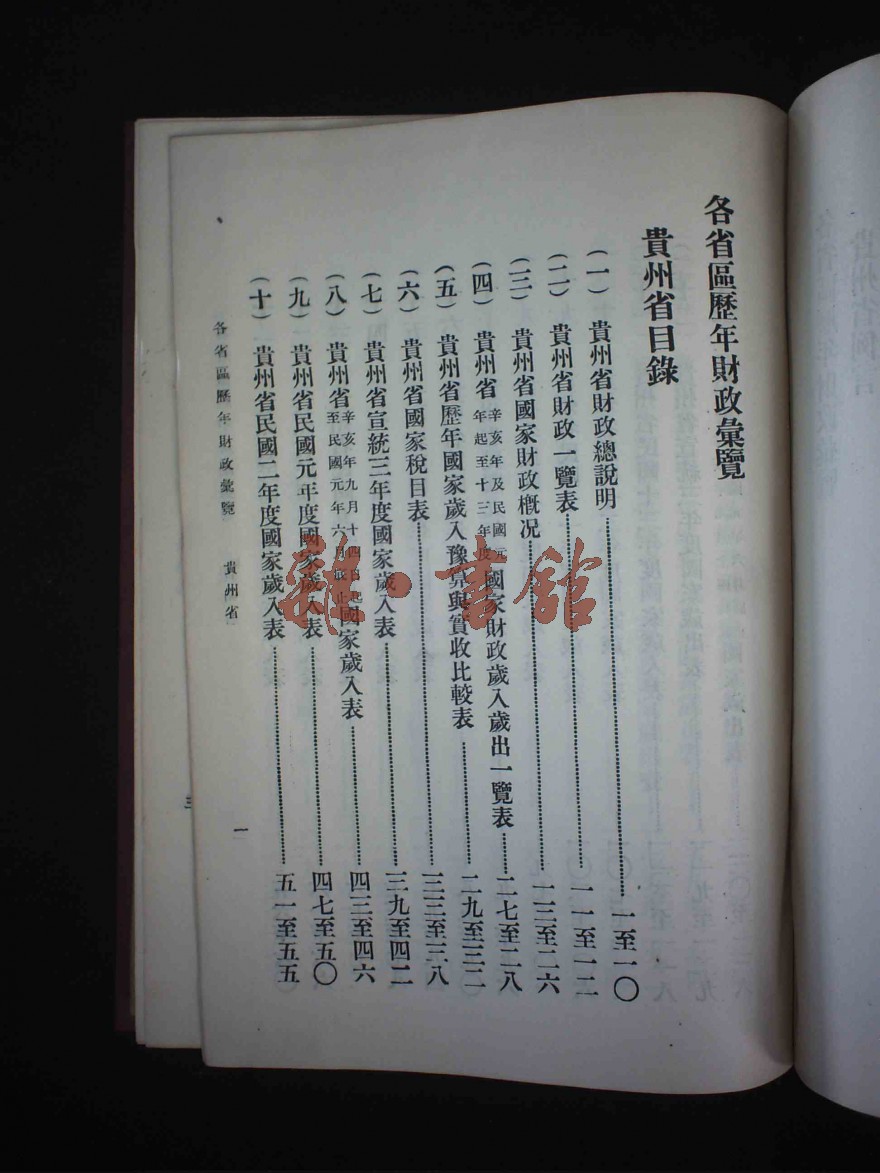 各省區歷年財政彙覽
貴州省目錄
(一) 貴州省財政總說明……一至一〇
(二) 貴州省財政一覽表……一一至一二
(三) 貴州省國家財政概況……一三至二六
(四) 貴州省辛亥年及民國元年起至十三年度國家財政歲入歲出一覽表……二七至二八
(五) 貴州省歷年國家歲入豫算與實收比較表……二九至三二
(六) 貴州省國家稅目表……三三至三八
(七) 貴州省宣統三年度國家歲入表……三九至四二
(八) 貴州省辛亥年九月十四日起至民國元年六月底止國家歲入表……四三至四六
(九) 貴州省民國元年度國家歲入表……四七至五〇
(十) 貴州省民國二年度國家歲入表……五一至五五
各省區歷年財政彙覽 貴州省
一
雜·書館